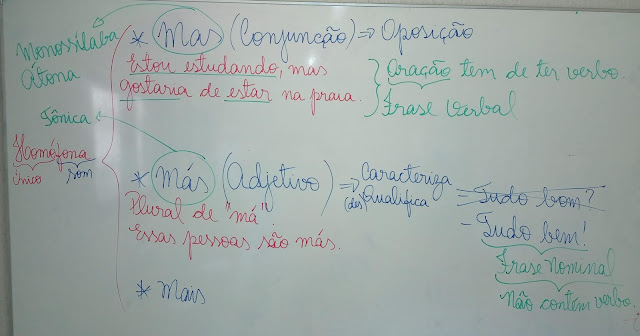 Monossílaba
Átona
* Mas (Conjuncção) ⇒ Oposição
Estou estudando, mas
gostaria de estar na praia.
Oração tem de ter verbo.
Frase Verbal
Tônica
Homófona
único som
* Más (Adjetivo) ⇒ Caracteriza
(des)Qualifica
Plural de "má".
Essas pessoas são más.
- Tudo bom?
- Tudo bem!
Frase Nominal
Não contém verbo.
* Mais